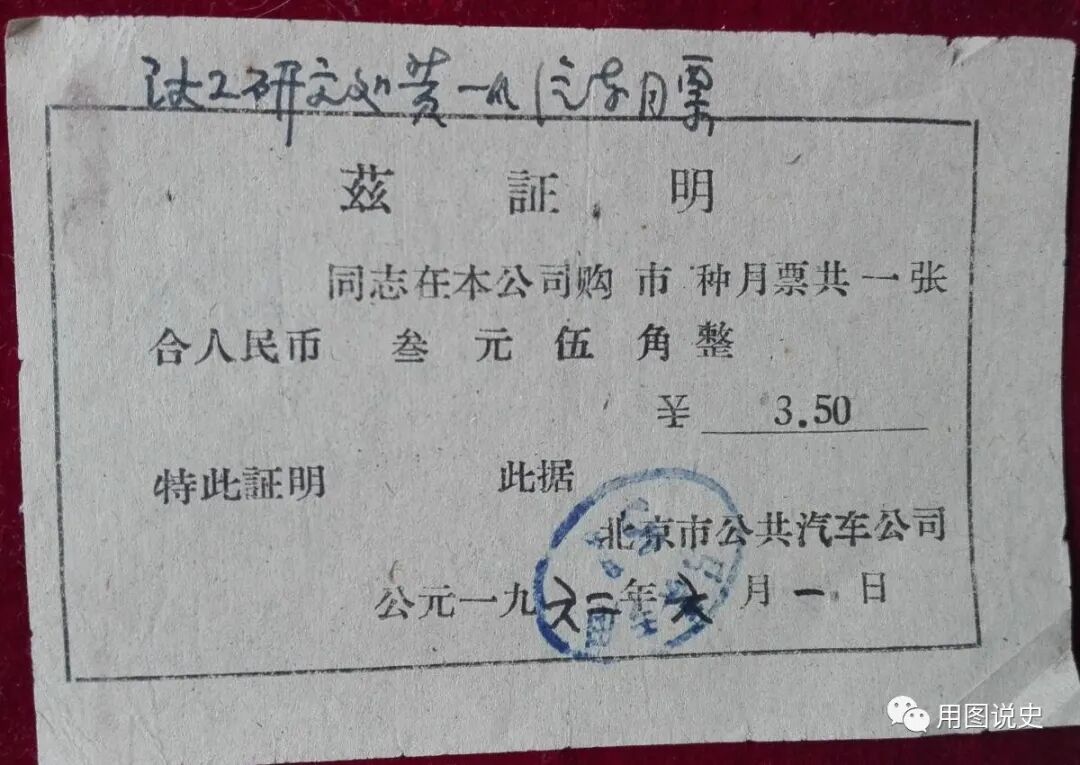 汽车月票
兹 証 明
同志在本公司购 市 种月票共一张
合人民币 叁 元 伍 角 整
¥ 3.50
特此証明 此据
北京市公共汽车公司
公元一九六二年六月一日
用图说史